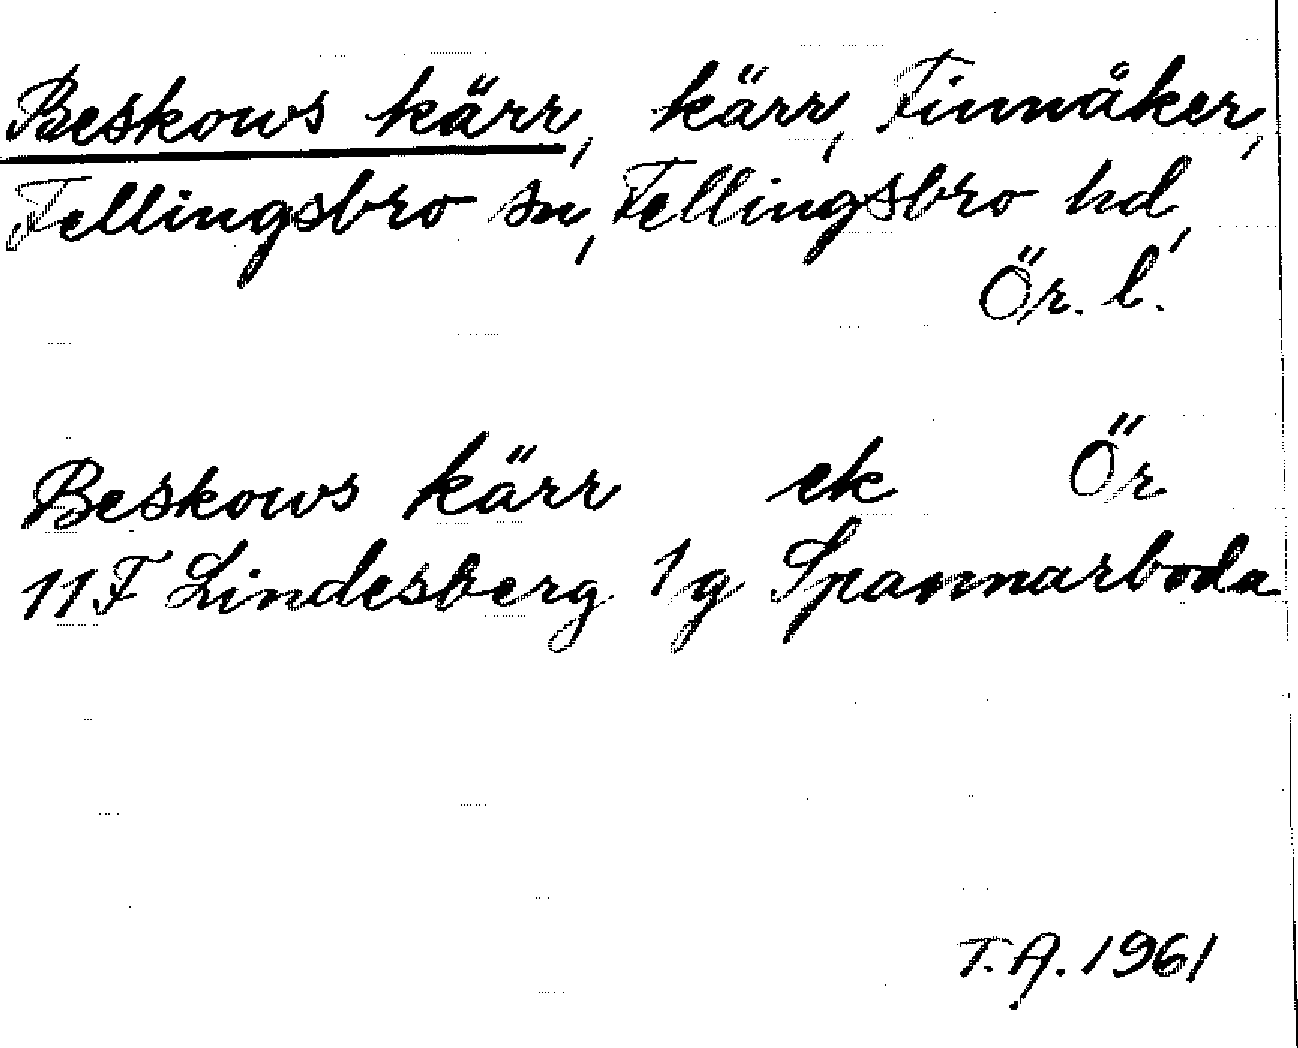 Beskows kärr, kärr, Finnåker,
Fellingsbro sn, Fellingsbro hd,
Ör. l.
Beskows kärr ek Ör
11F Lindesberg 1g Spannarboda
T.A. 1961